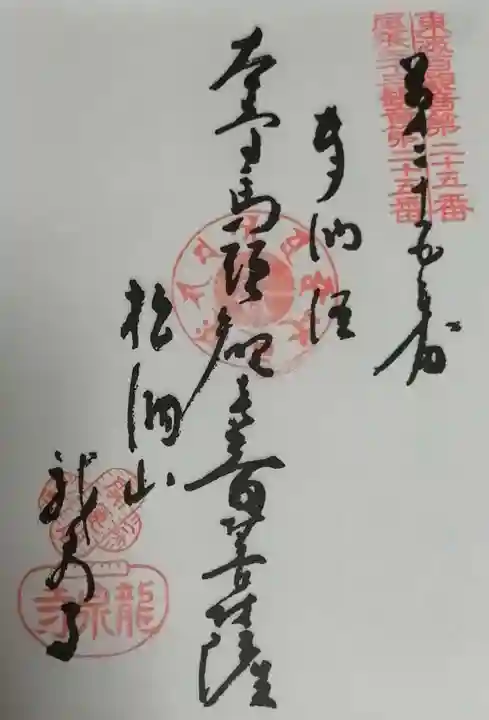 東海百観音第二十五番
尾張三十三観音第二十五番
第二十五番
奉納経
本尊馬頭観世音菩薩
松洞山
龍泉寺
龍泉寺